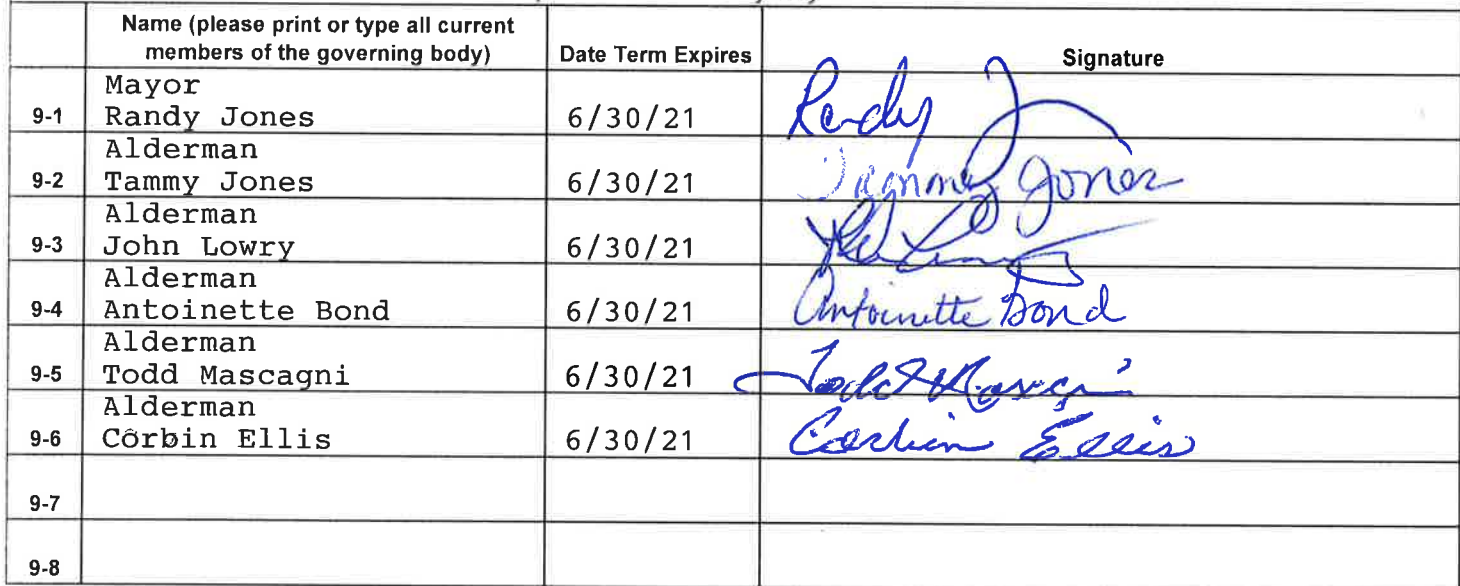 Name (please print or type all current
members of the governing body)
Date Term Expires
Signature
Mayor
9-1 Randy Jones 6/30/21 Randy J
Alderman
9-2 Tammy Jones 6/30/21 Tammy Jones
Alderman
9-3 John Lowry 6/30/21
Alderman
9-4 Antoinette Bond 6/30/21 Antoinette Bond
Alderman
9-5 Todd Mascagni 6/30/21 Todd Mascagni
Alderman
9-6 Corbin Ellis 6/30/21 Corbin Ellis
9-7
9-8